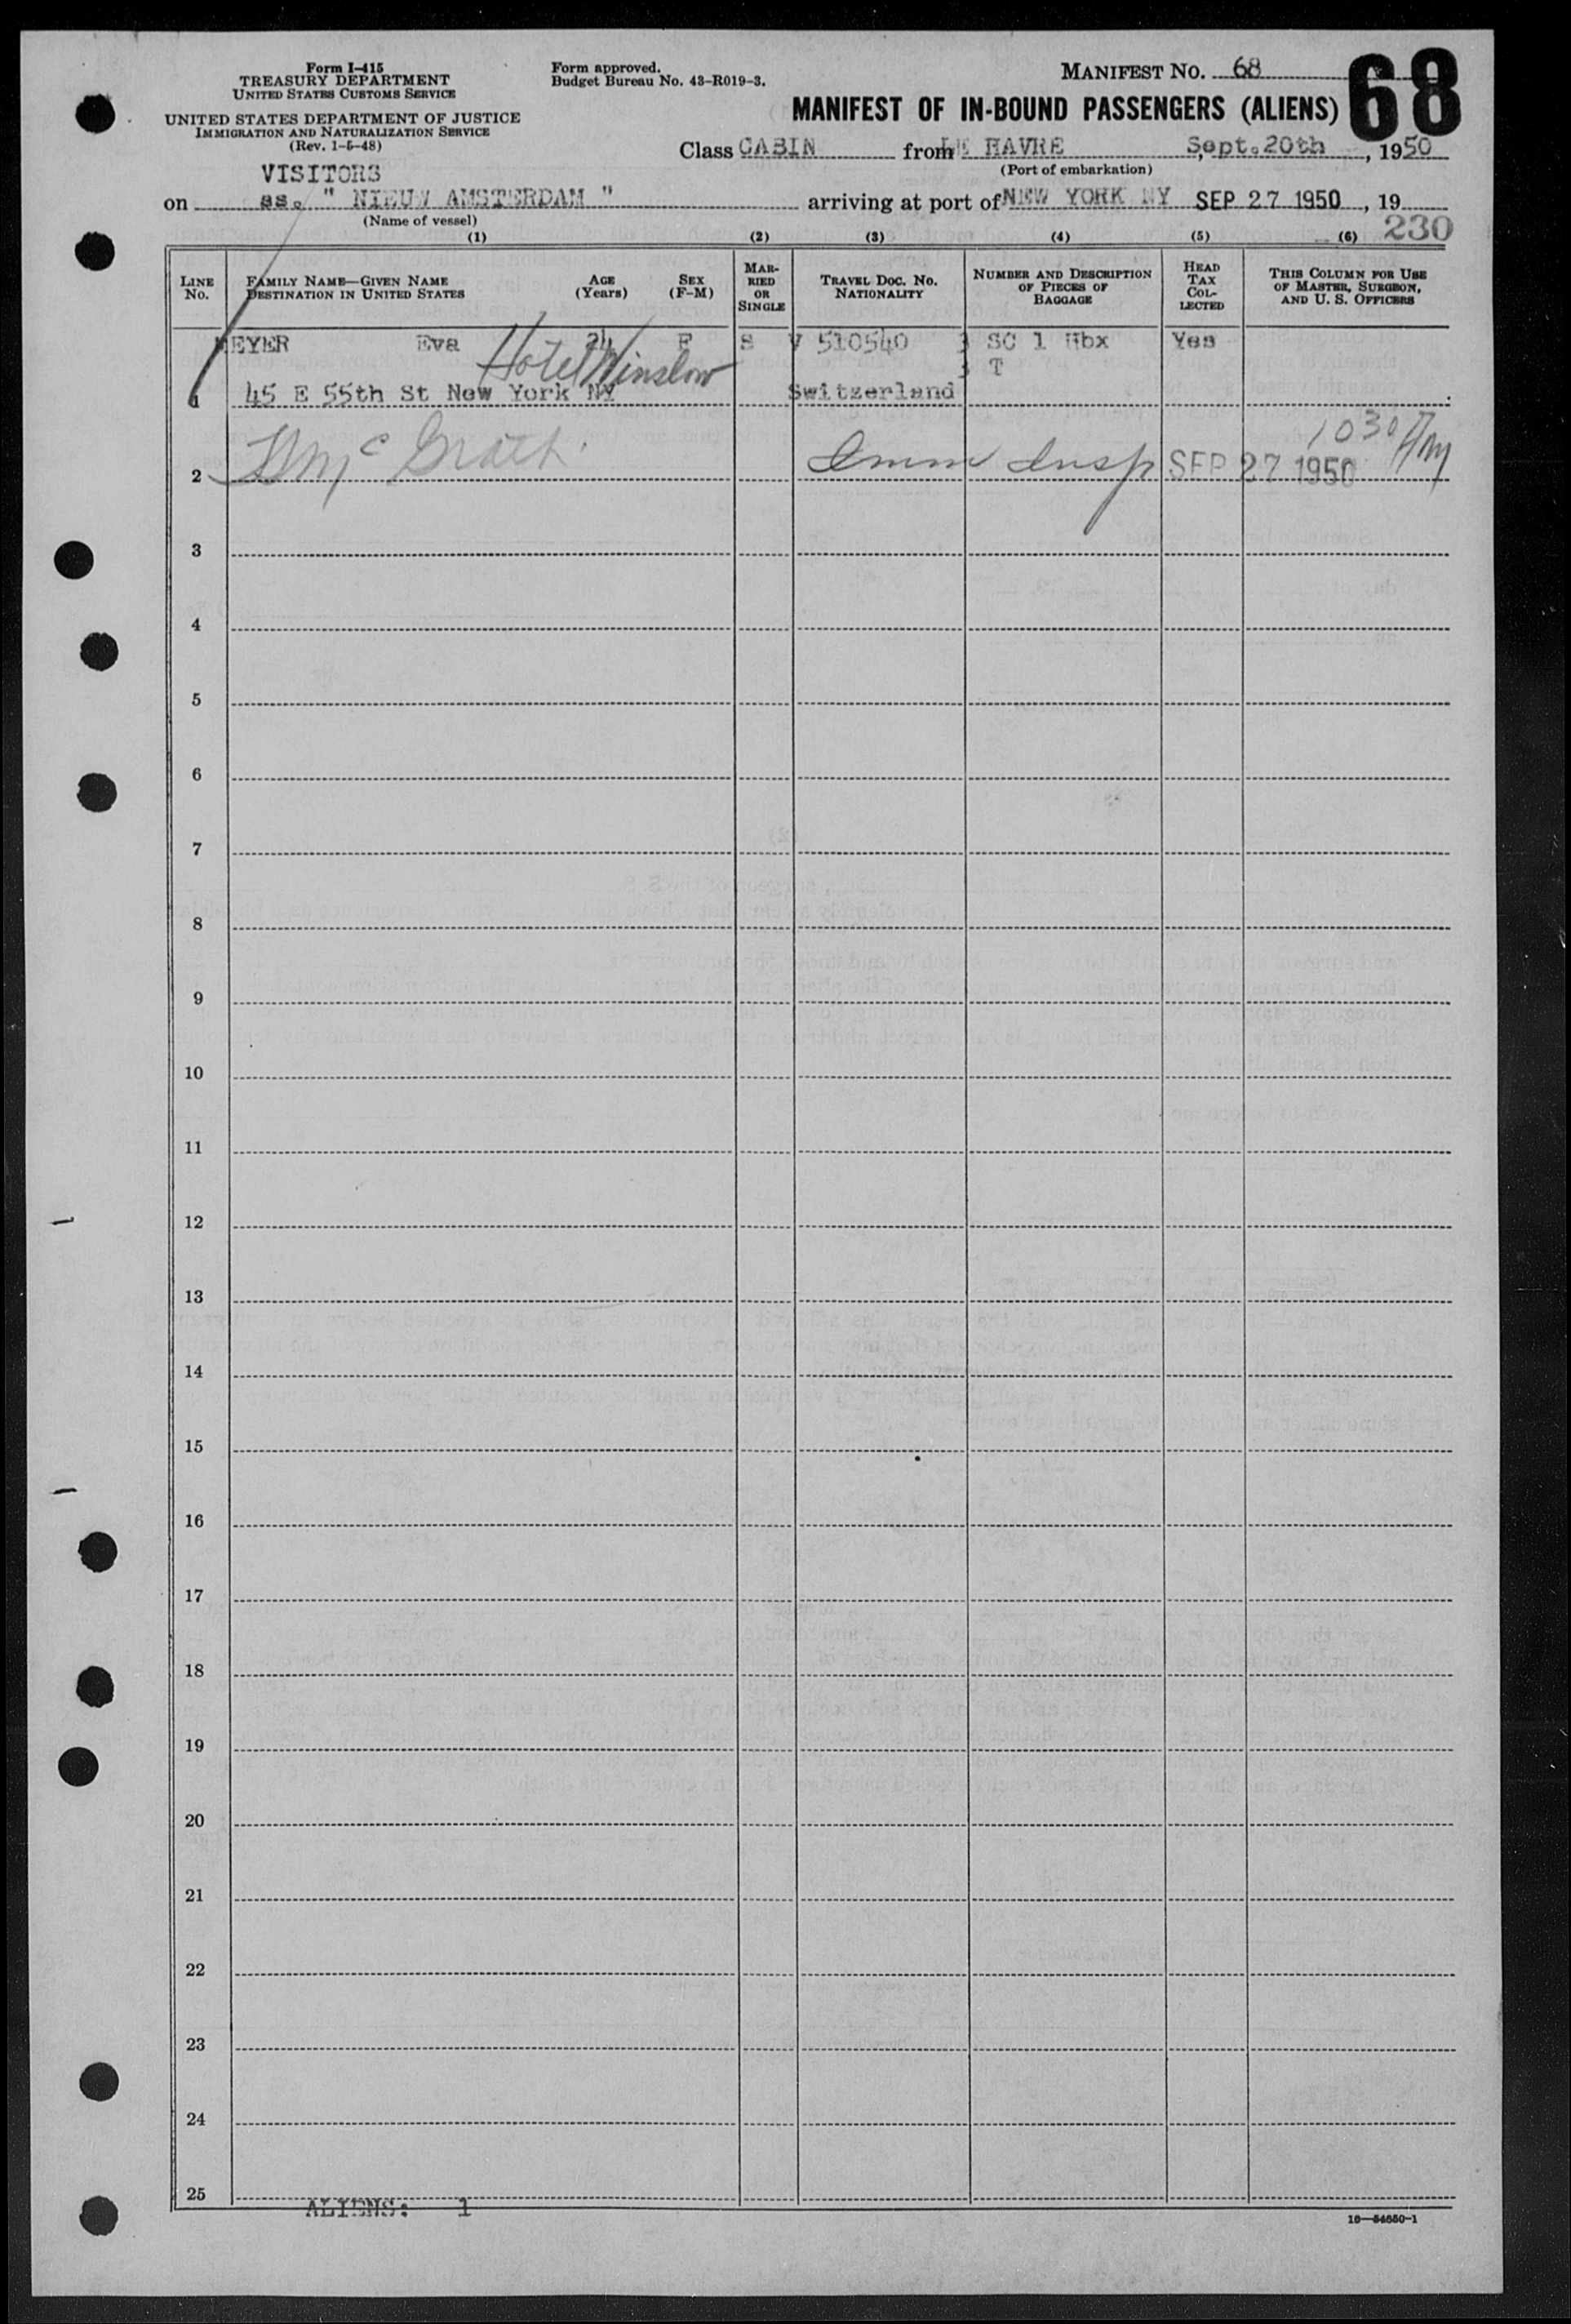 Form I-415
TREASURY DEPARTMENT
UNITED STATES CUSTOMS SERVICE
UNITED STATES DEPARTMENT OF JUSTICE
IMMIGRATION AND NATURALIZATION SERVICE
(Rev. 1-5-48)
Form approved.
Budget Bureau No. 43-R019-3.
MANIFEST No. 68
68
MANIFEST OF IN-BOUND PASSENGERS (ALIENS)
Class CABIN from LE HAVRE Sept.20th, 1950
(Port of embarkation)
VISITORS
on ss. " NIEUW AMSTERDAM " arriving at port of NEW YORK NY SEP 27 1950, 19
(Name of vessel)
230
(1) (2) (3) (4) (5) (6)
LINE No.
FAMILY NAME—GIVEN NAME
DESTINATION IN UNITED STATES
AGE (Years)
SEX (F-M)
MARRIED OR SINGLE
TRAVEL DOC. NO.
NATIONALITY
NUMBER AND DESCRIPTION OF PIECES OF BAGGAGE
HEAD TAX COLLECTED
THIS COLUMN FOR USE OF MASTER, SURGEON, AND U. S. OFFICERS
EYER Eva 24 F S V 510540 3 SC 1 Hbx Yes
Hotel Winslow
3 T
1 45 E 55th St New York NY Switzerland
2 McGrath Imm Insp SEP 27 1950 1030 AM
3
4
5
6
7
8
9
10
11
12
13
14
15
16
17
18
19
20
21
22
23
24
25
ALIENS: 1
16—54650-1